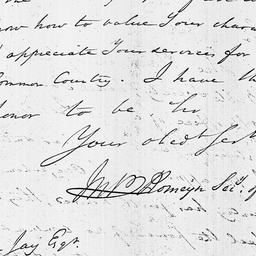 the
now how to value Your chara
appreciate Your services for
Common Country. I have th
onor to be, Sir
Your obedt Sert
Romeyn Secy. of
Jay Esqr